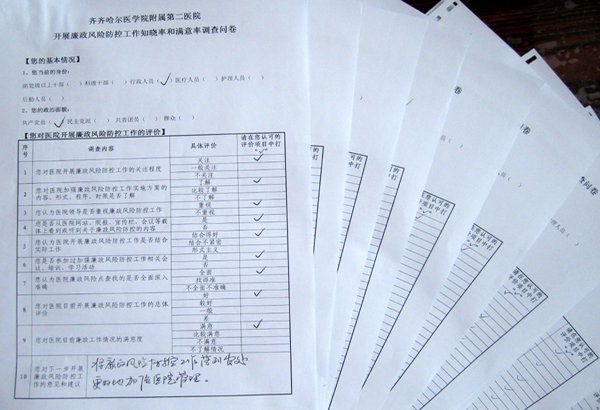 齐齐哈尔医学院附属第二医院
开展廉政风险防控工作知晓率和满意率调查问卷
【您的基本情况】
1、您当前的身份:
副处级以上干部（ ）科级干部（ ）行政人员（✓）医疗人员（ ）护理人员（ ）
后勤人员（ ）
2、您的政治面貌:
共产党员（✓）民主党派（ ）共青团员（ ）群众（ ）
【您对医院开展廉政风险防控工作的评价】
序号 调查内容 具体评价 请在您认可的评价项目中打"✓"
1 您对医院开展廉政风险防控工作的关注程度 关注 ✓
一般关注
不关注
2 您对医院加强廉政风险防控工作实施方案的内容、形式、程序、时限是否了解 了解 ✓
比较了解
不了解
3 您认为医院领导是否重视廉政风险防控工作 重视 ✓
不重视
4 您是否从医院网站、院报、宣传栏、会议等载体上看到或听到关于廉政风险防控的内容 是 ✓
否
5 您认为医院开展廉政风险防控工作是否结合实际工作 结合得好 ✓
结合不紧密
形式主义
6 您是否参加过加强廉政风险防控工作相关会议、培训、学习活动 是 ✓
否
7 您认为医院风险点查找的是否全面深入准确 全面 ✓
找得准
不全面不准确
8 您对医院目前开展廉政风险防控工作的总体评价 好 ✓
较好
一般
差
9 您对医院目前廉政工作情况的满意度 满意 ✓
比较满意
不满意
不了解情况
10 您对下一步开展廉政风险防控工作的意见和建议
更好地加强医院管理。
请在您认可的评价项目中打